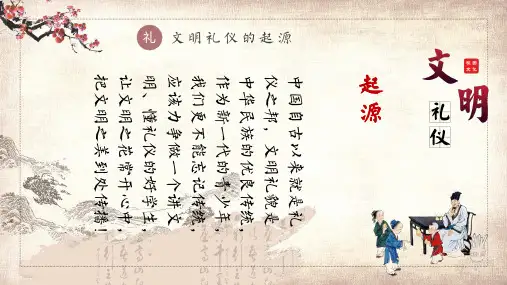 礼 文明礼仪的起源
文明
礼仪
起源
中国自古以来就是礼
仪之邦，文明礼貌是
中华民族的优良传统。
作为新一代的青少年，
我们更不能忘记传统，
应该力争做一个讲文
明、懂礼仪的好学生，
让文明之花常开心中，
把文明之美到处传播！